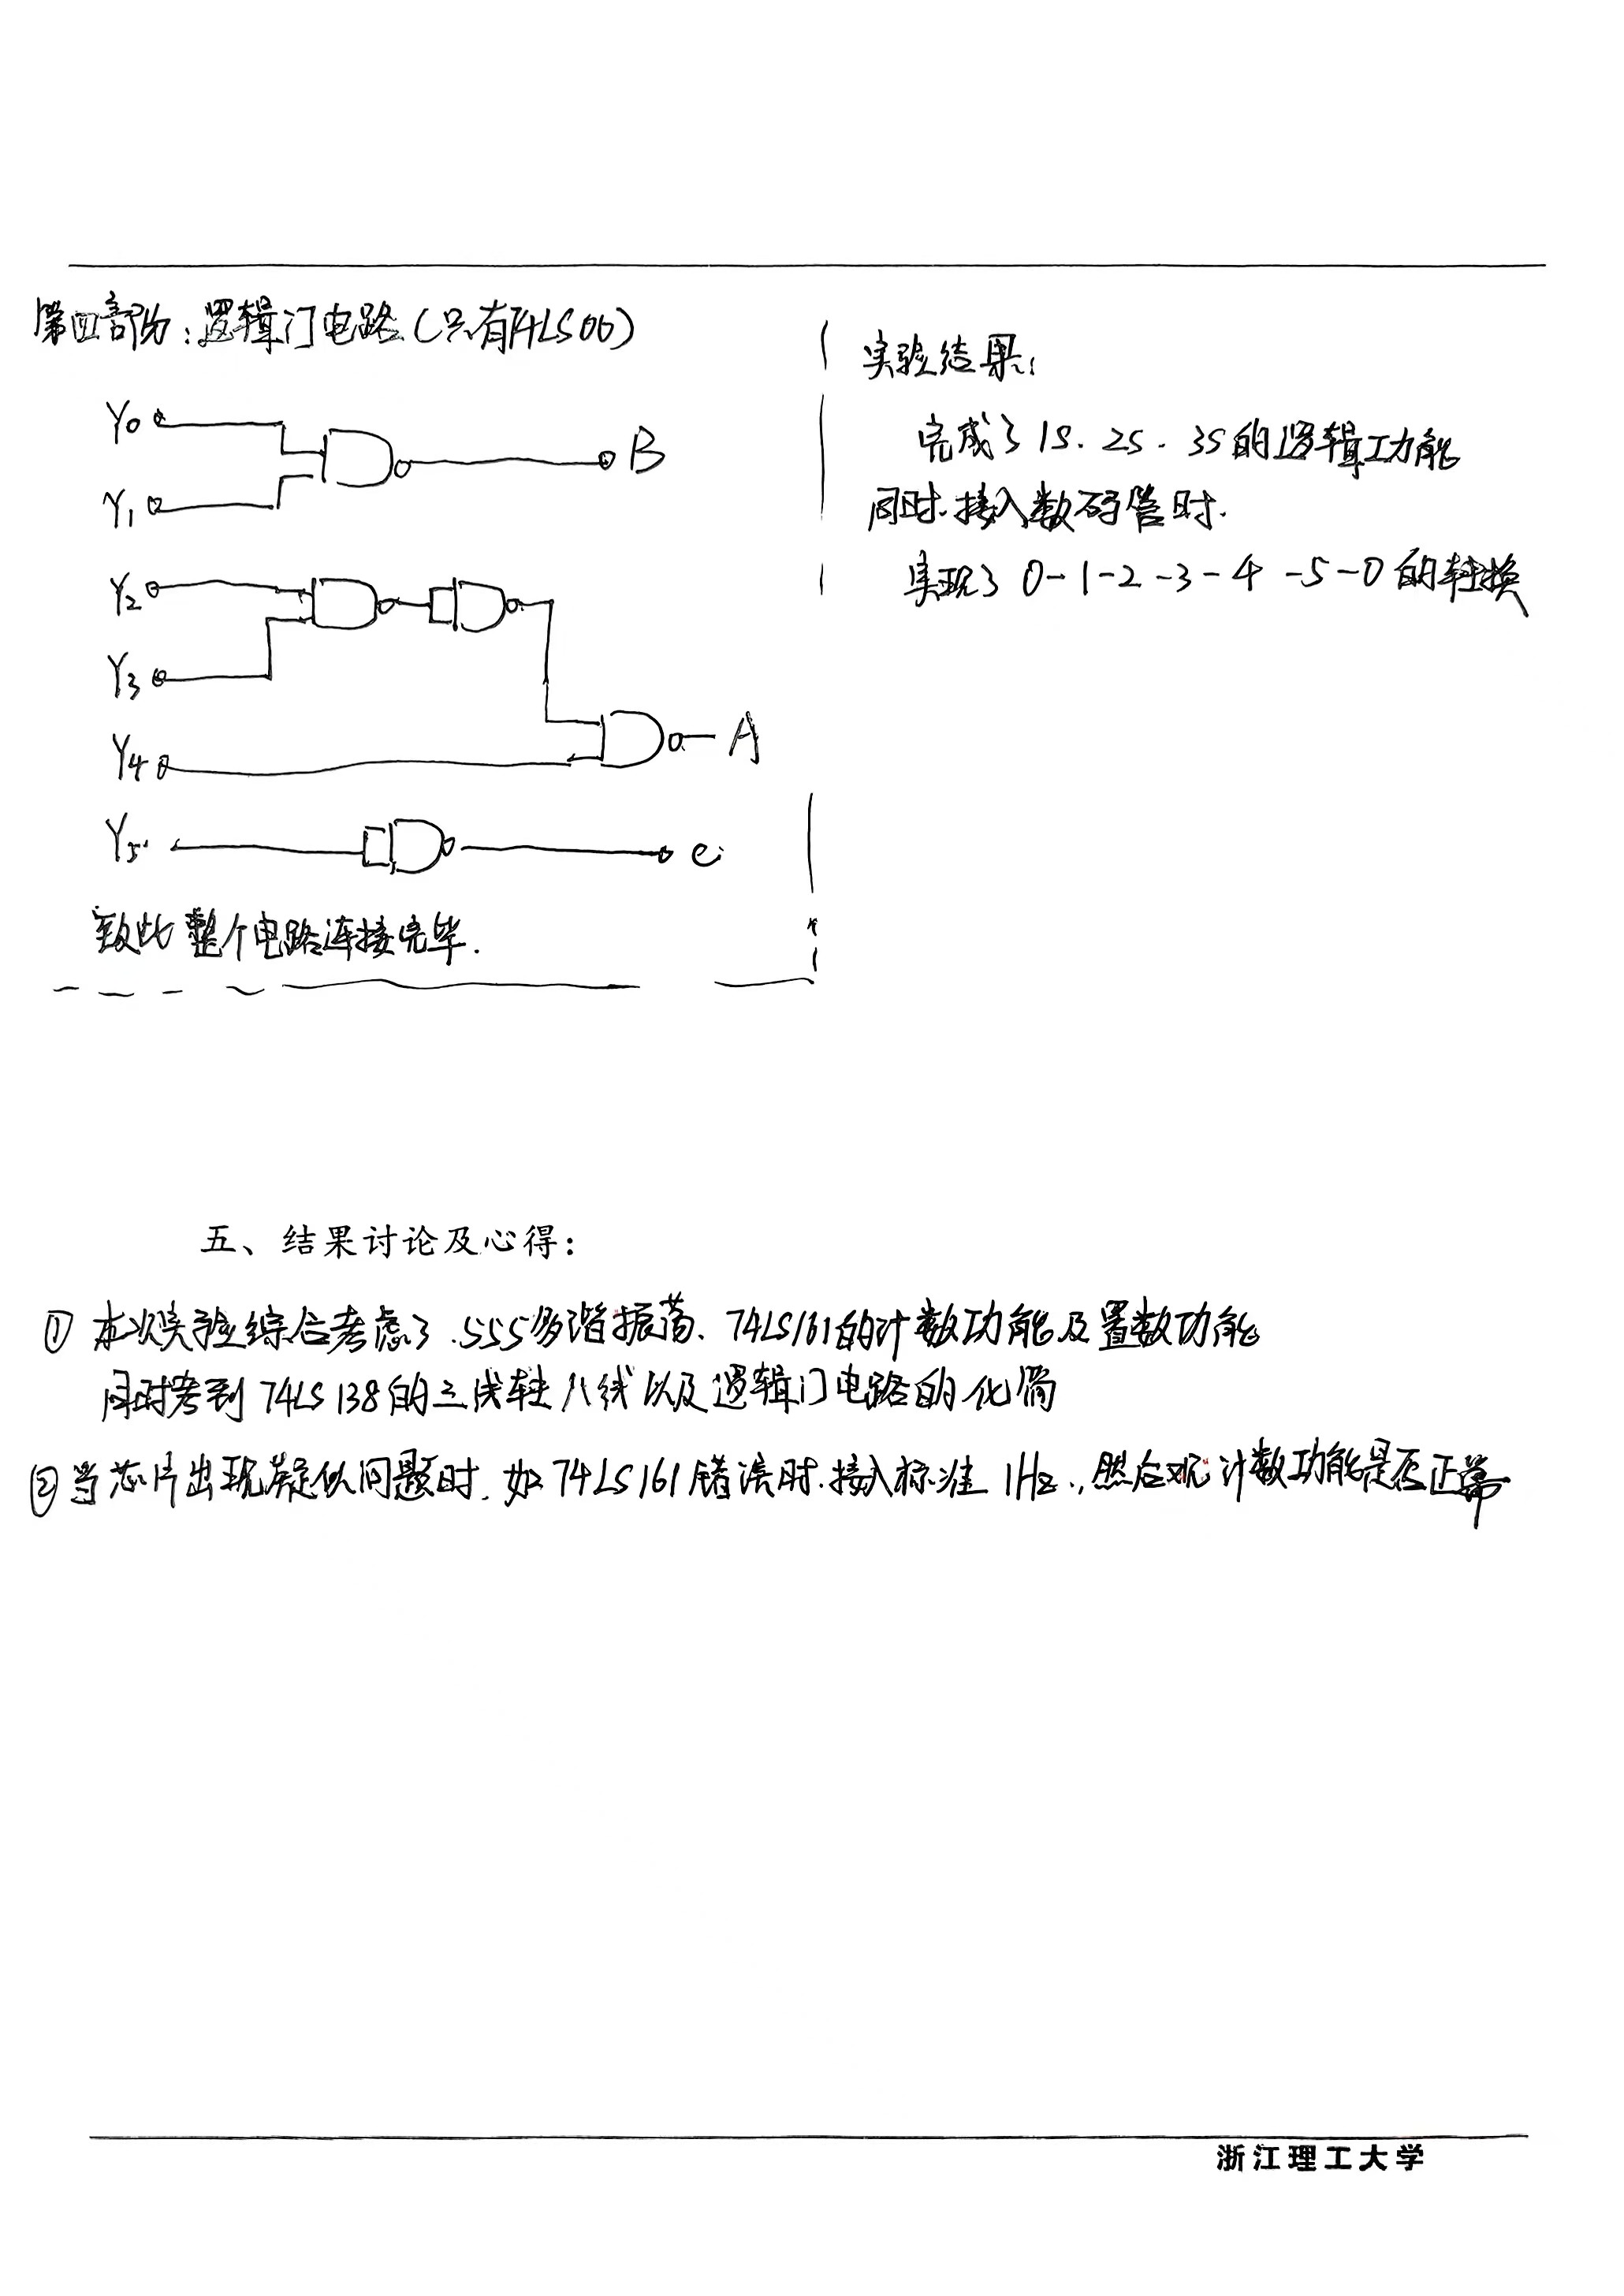 第四部份:逻辑门电路(只有74LS00)
Y0
B
Y1
Y2
Y3
Y4
A
Y5
e
致此整个电路连接完毕.
实验结果:
完成了1S.2S.3S的逻辑功能
同时.接入数码管时.
实现了0-1-2-3-4-5-0的转换
五、结果讨论及心得:
① 本次实验综合考虑了.555多谐振荡、74LS161的计数功能及置数功能
同时考到74LS138的三线转八线以及逻辑门电路的化简
② 当芯片出现疑似问题时.如74LS161错误时.接入标准1Hz.,然后观计数功能是否正常
浙江理工大学